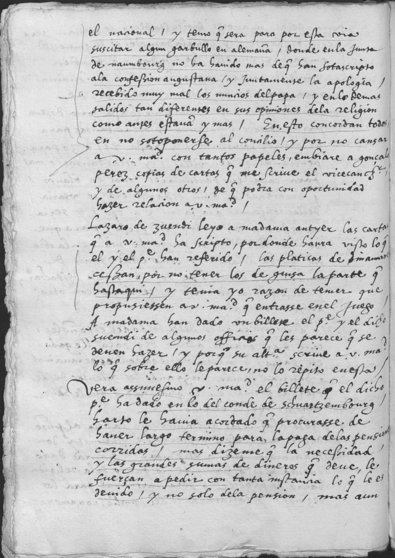 el nacional / y temo q̃ sera para por esta via
suscitar algun garbullo en alemaña / donde en la Junta
de naumbourg no ha havido mas de q̃ han sotascripto
a la confession augustana / y Juntamente la apologia /
recebido muy mal los nuncios del papa / y en lo demas
salidos tan diferentes en sus opiniones de la religion
como antes estavã y mas / En esto concordan todos
en no sotoponerse al concilio / y por no cansar
a v. mad. con tantos papeles, embiare a gonçalo
perez copias de cartas q̃ me scrive el vicecancer
y de algunos otros / de q̃ podra con oportunidad
hazer relacion a v. mad. /
Lazaro de zuendi leyo a madama antyer las cartas
q̃ a v. mad. ha scripto, por donde havra visto lo q̃
el y el pe. han referido / las platicas de
cessan, por no tener los de guisa la parte q̃
hasta qui / y tenia yo razon de temer que
propusiessen a v. mad. q̃ entrasse en el Juego
A madama han dado un billete el pe. y el dicho
suendi de algunos officios q̃ les parece q̃ se
deven hazer / y porq̃ su alta. scrive a v. mad.
lo q̃ sobre ello le parece, no lo repito en esta /
Vera assimesmo v. mad. el billete q̃ el dicho
pe. ha dado en lo del conde de schuartzembourg /
harto le havia acordado q̃ procurasse de
haver largo termino para la paga de las pensiones
corridas / mas dizeme q̃ la necessidad
y las grandes sumas de dineros q̃ deve, le
fuerçan a pedir con tanta instancia lo q̃ le es
devido / y no solo de la pension / mas aun